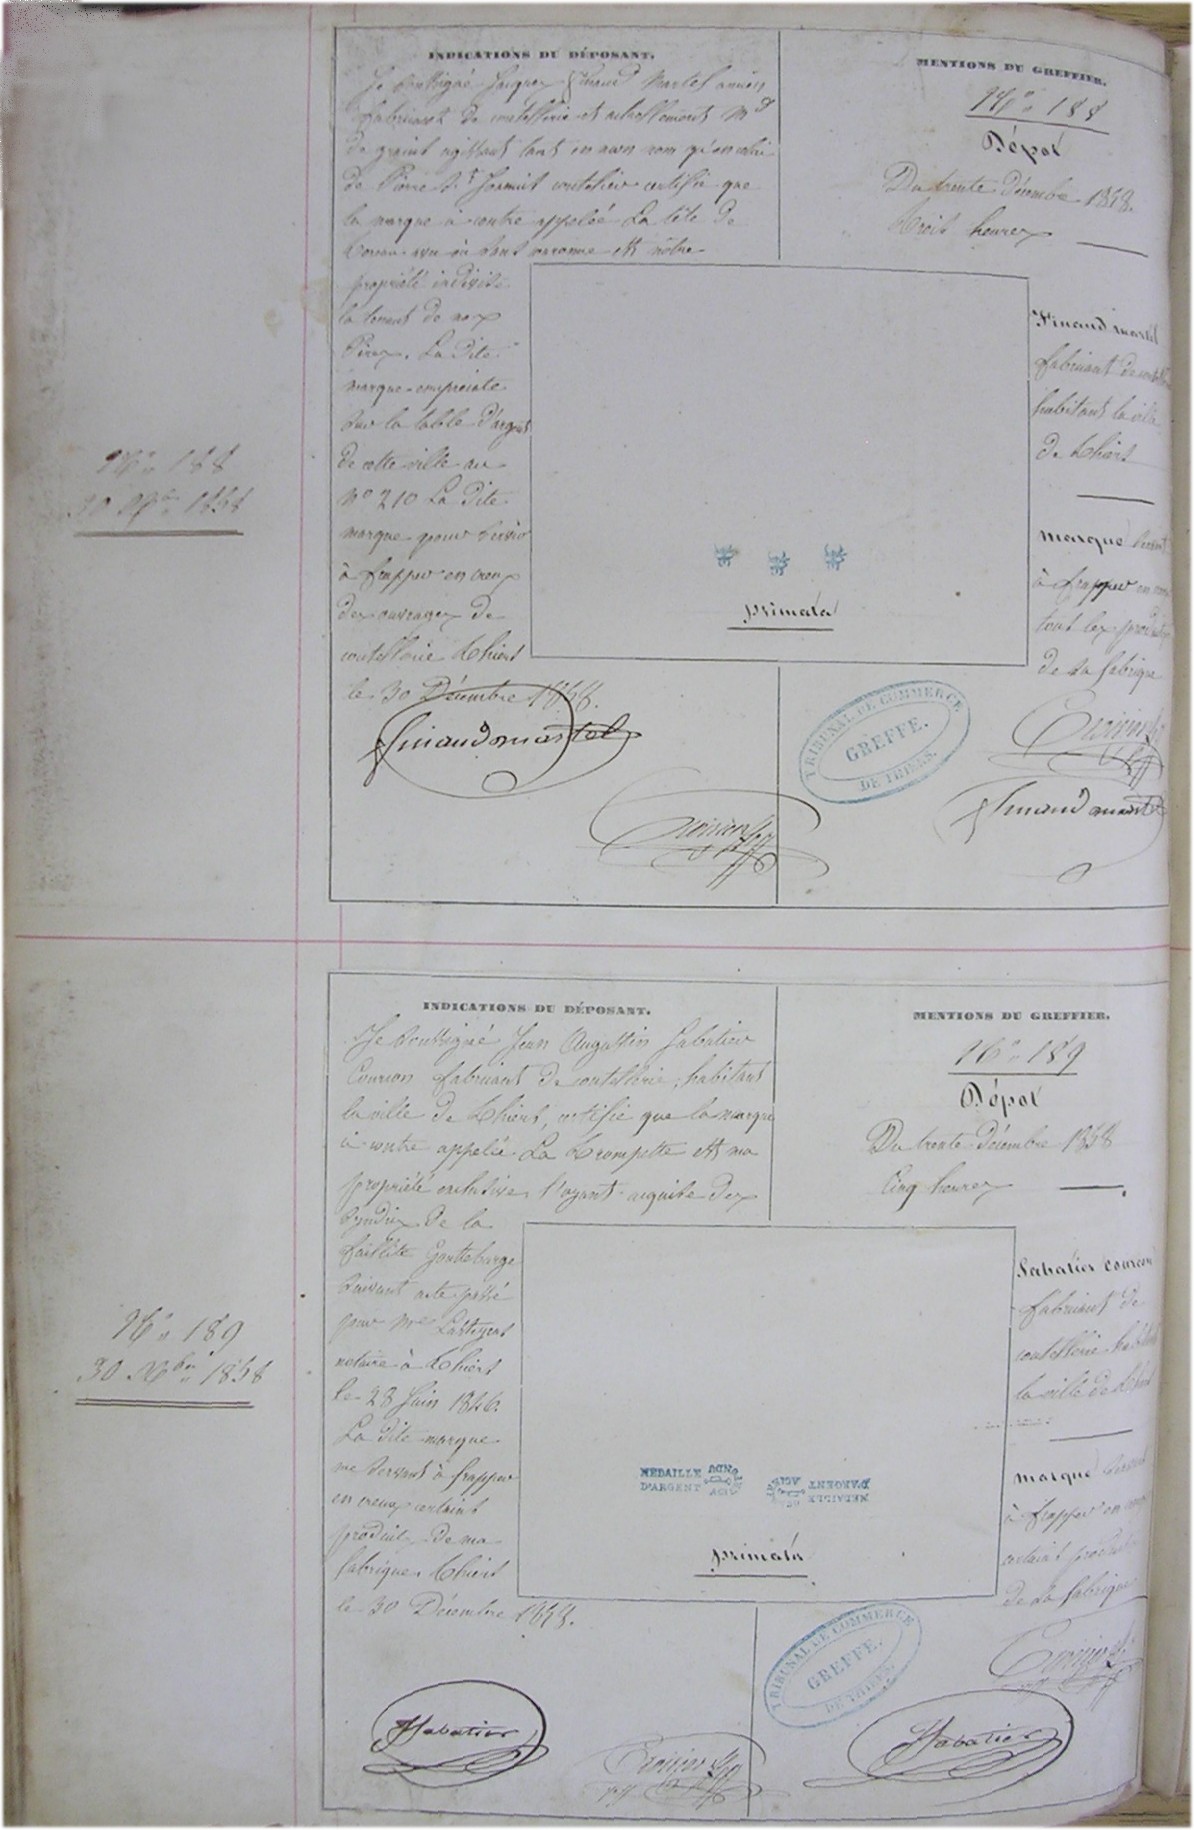 N° 188
30 Xbre 1858
INDICATIONS DU DÉPOSANT.
Je soussigné Jacques Finaud Martel ancien
fabricant de coutellerie et actuellement Md
de grains agissant tant en mon nom qu'en celui
de Pierre coutelier certifie que
la marque à contre appelée La tête de
est nôtre
propriété indivise
la tenant de nos
Pères. La dite
marque empreinte
sur la table d'argent
de cette ville au
N° 210 La dite
marque pour servir
à frapper en creux
des ouvrages de
coutellerie Thiers
le 30 Décembre 1858.
Finaud martel
primata
MENTIONS DU GREFFIER.
N° 188
Dépot
Du trente Décembre 1858.
trois heures
Finaud martel
fabricant de
habitant la ville
de Thiers
marque servant
à frapper en
tout les produits
de sa fabrique
TRIBUNAL DE COMMERCE
GREFFE.
DE THIERS.
Finaud martel
N° 189
30 Xbre 1858
INDICATIONS DU DÉPOSANT.
Je soussigné Jean Augustin Sabatier
Courson fabricant de coutellerie, habitant
la ville de Thiers, certifie que la marque
à contre appelée La Trompette est ma
propriété exclusive l'ayant acquise des
syndics de la
faillite Gouttebarge
suivant acte passé
par Me Lasteyras
notaire à Thiers
le 28 Juin 1846.
La dite marque
me servant à frapper
en creux certains
produits de ma
fabrique. Thiers
le 30 Décembre 1858.
Sabatier
MEDAILLE
D'ARGENT
MEDAILLE
D'ARGENT
primata
MENTIONS DU GREFFIER.
N° 189
Dépot
Du trente Décembre 1858
Cinq heures
Sabatier courson
fabricant de
coutellerie habitant
la ville de Thiers
marque servant
à frapper en
certains produits
de sa fabrique
TRIBUNAL DE COMMERCE
GREFFE.
DE THIERS.
Sabatier